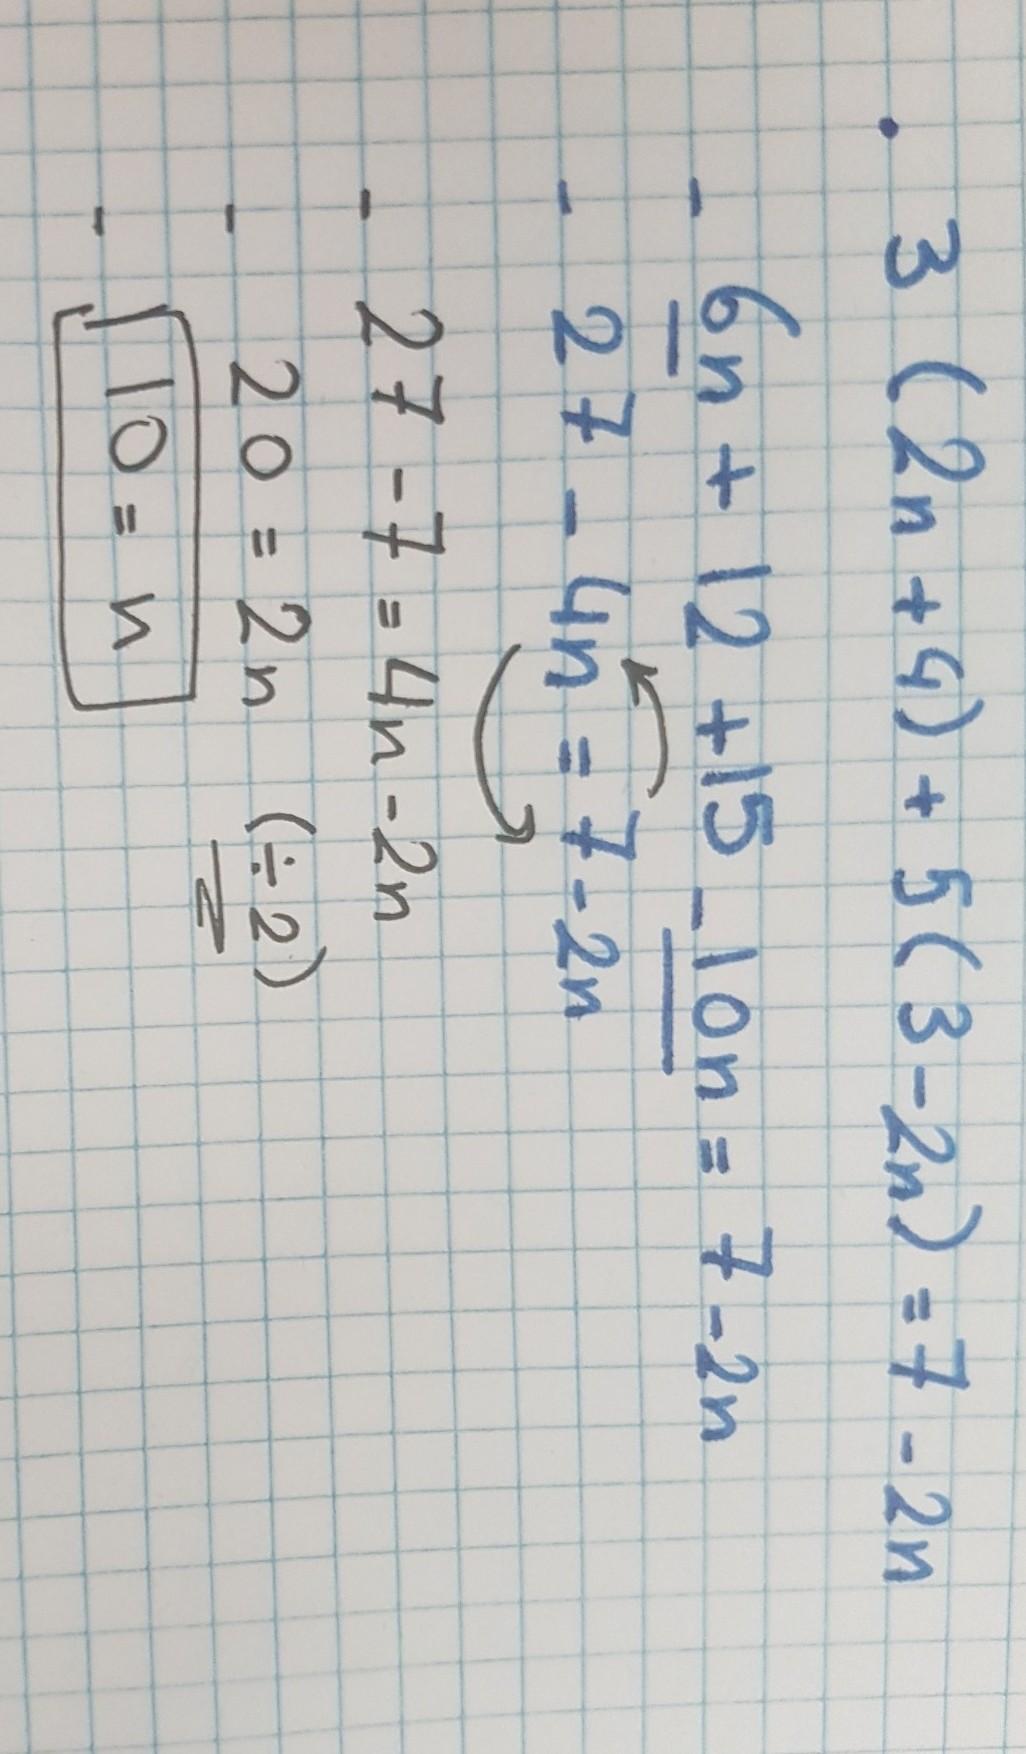 • 3 (2n + 4) + 5 (3 - 2n) = 7 - 2n
- 6n + 12 + 15 - 10n = 7 - 2n
- 27 - 4n = 7 - 2n
- 27 - 7 = 4n - 2n
- 20 = 2n (÷2)
- 10 = n